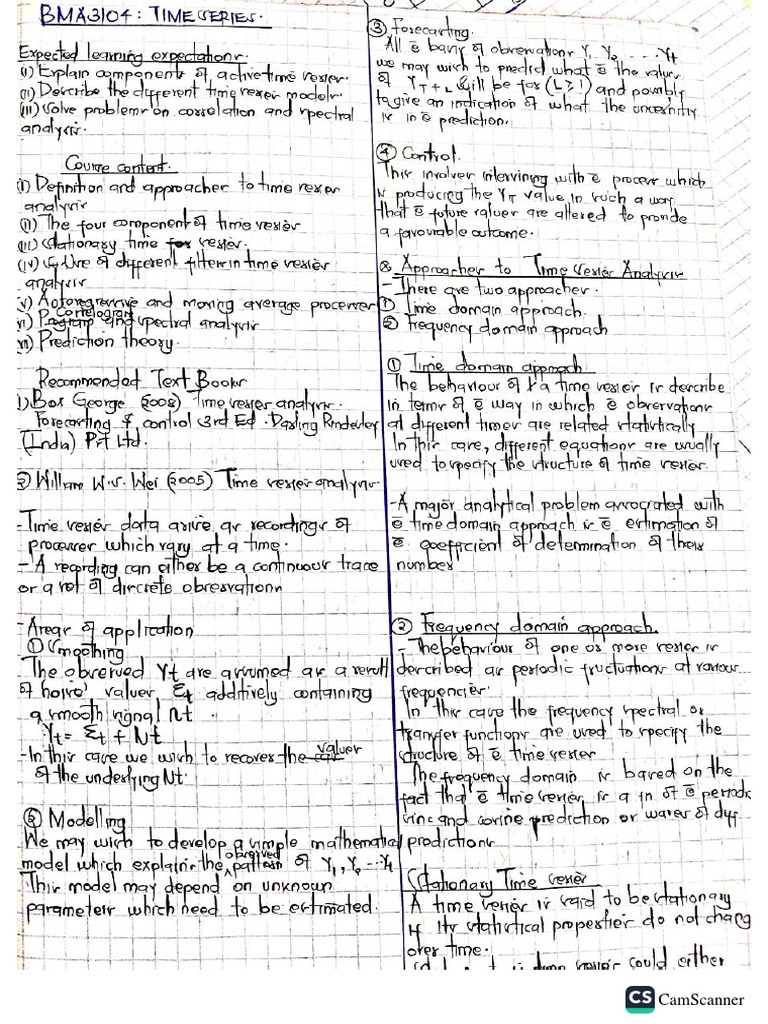 BMA3104: TIME SERIES.
Expected learning expectations.
(i) Explain components of active time series.
(ii) Describe the different time series models.
(iii) Solve problems on correlation and spectral
analysis.
Course content.
(i) Definition and approaches to time series
analysis
(ii) The four component of time series
(iii) Stationary time series.
(iv) Use of different filters in time series
analysis
(v) Autoregressive and moving average processes
vi) Correlogram and spectral analysis
vii) Prediction theory.
Recommended Text Books
1) Box George (2008) Time series analysis.
Forecasting & control 3rd Ed. Darling
(India) PvT Ltd.
2) William W.S. Wei (2005) Time series analysis
- Time series data arise as recordings of
processes which vary at a time.
- A recording can either be a continuous trace
or a set of discrete observations
- Areas of application
① Smoothing
- The observed Yt are assumed as a result
of noise values Ɛt additively containing
a smooth signal nt.
Yt = Ɛt + Nt
- In this case we wish to recover the values
of the underlying Nt.
② Modelling
We may wish to develop a simple mathematical
model which explains the observed pattern of Y1, Y2 ... Yt
This model may depend on unknown
parameters which need to be estimated.
③ Forecasting.
All ē basis of observations Y1 Y2 ..... Yt
we may wish to predict what ē the values
of YT+L will be for (L≥1) and possibly
to give an indication of what the uncertainty
is in ē prediction.
④ Control.
This involves intervining with ē process which
is producing the YT value in such a way
that ē future values are altered to provide
a favourable outcome.
Approaches to Time Series Analysis
- There are two approaches.
① Time domain approach.
② Frequency domain approach
① Time domain approach
The behaviour of a time series is describe
in terms of ē way in which ē observations
at different times are related statistically
In this case, different equations are usually
used to specify the structure of time series.
- A major analytical problem associated with
ē time domain approach is ē estimation of
ē coefficient of determination of their
number
② Frequency domain approach.
- The behaviour of one or more series is
described as periodic fructuations at various
frequencies.
In this case the frequency spectral or
transfer functions are used to specify the
structure of ē time series
The frequency domain is based on the
fact that ē time series is a fn of ē periodic
sine and cosine prediction or waves of diff
predictions
Stationary Time series
A time series is said to be stationary
if its statistical properties do not chang
over time.
time series could either
CS CamScanner